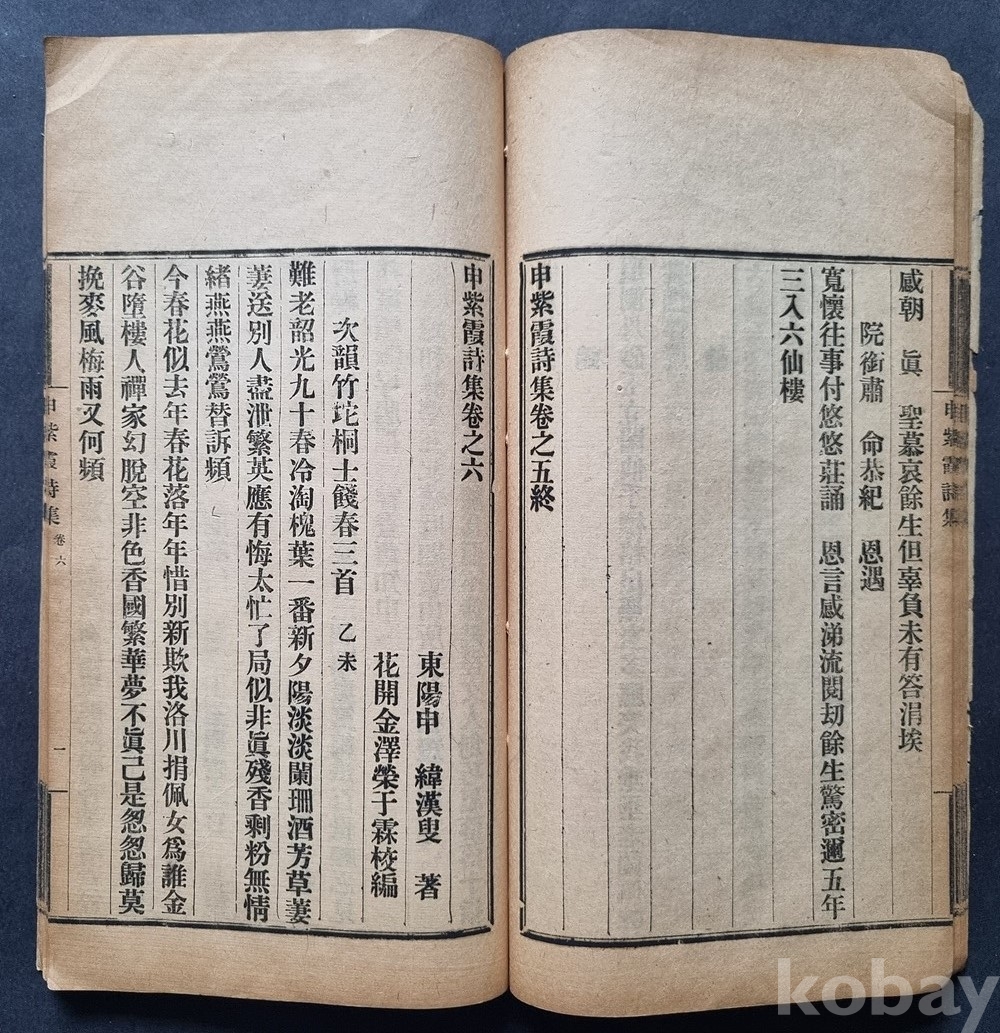 感朝　眞　聖慕哀餘生但辜負未有答涓埃
院銜肅　命恭紀　恩遇
寬懷往事付悠悠莊誦　恩言感涕流閱劫餘生驚密邇五年
三入六仙樓
申紫霞詩集卷之五終
申紫霞詩集
申紫霞詩集卷之六
東陽申　緯漢叟　著
花開金澤榮于霖校編
次韻竹坨桐士餞春三首　乙未
難老韶光九十春冷淘槐葉一番新夕陽淡淡闌珊酒芳草萋
萋送別人盡泄繁英應有悔太忙了局似非眞殘香剩粉無情
緒燕燕鶯鶯替訴頻
今春花似去年春花落年年惜別新欺我洛川捐佩女爲誰金
谷墮樓人禪家幻脫空非色香國繁華夢不眞己是怱怱歸莫
挽麥風梅雨又何頻
申紫霞詩集　卷六
一
kobay